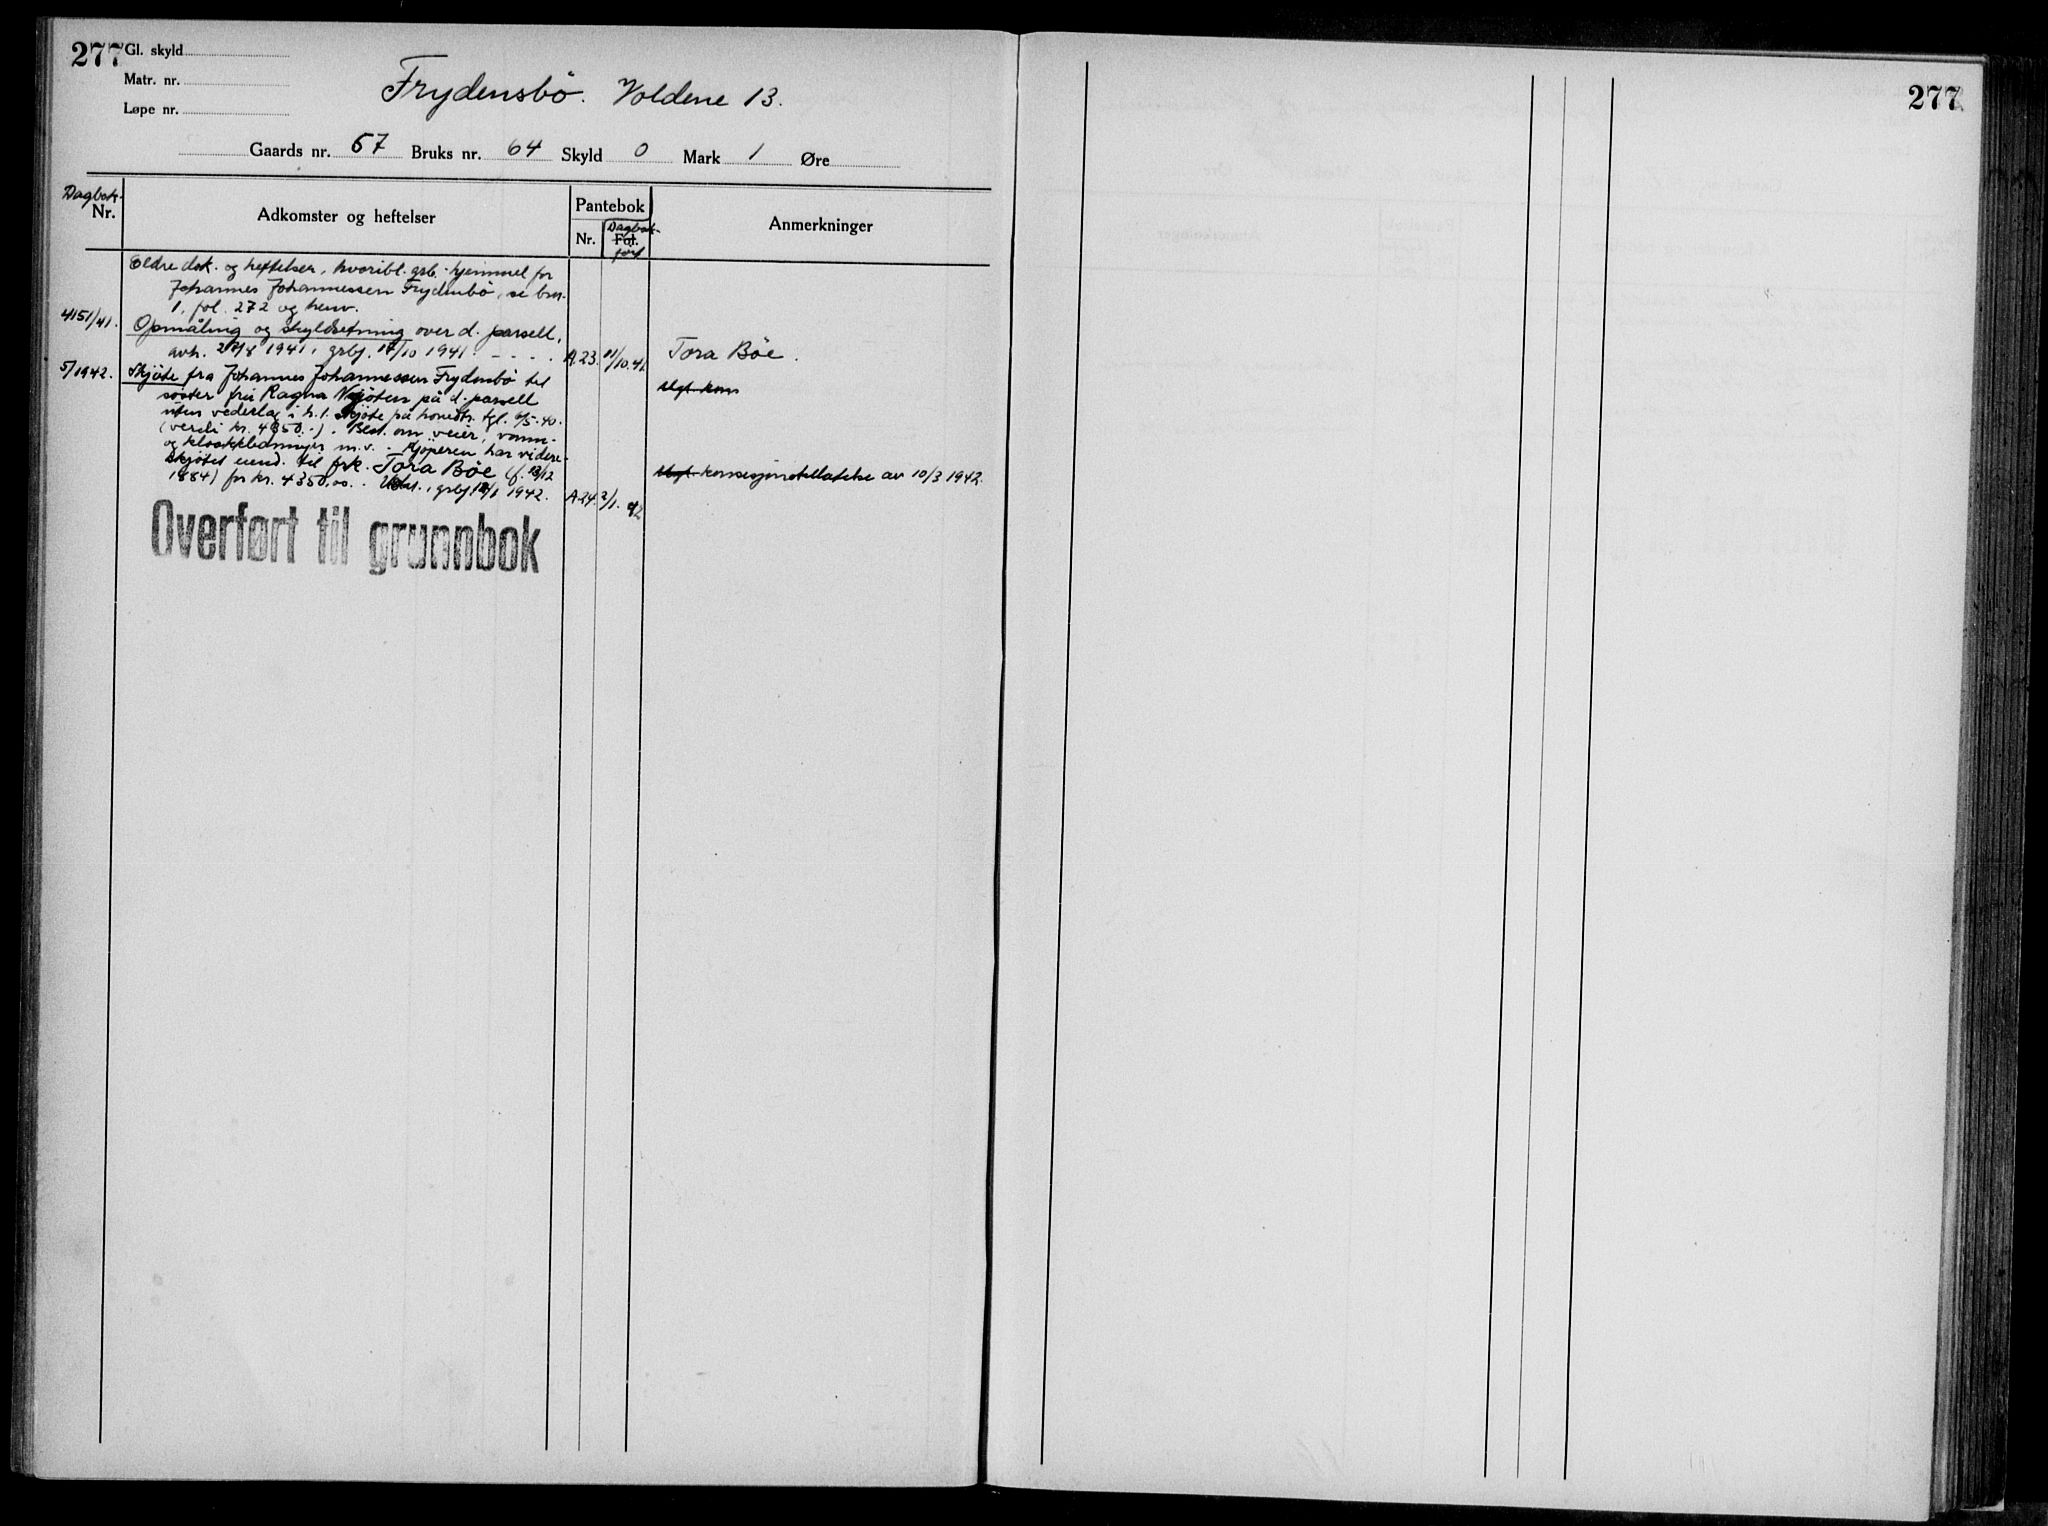 277
Gl. skyld
Matr. nr.
Løpe nr.
Frydensbø. Voldene 13.
Gaards nr. 57 Bruks nr. 64 Skyld 0 Mark 1 Øre
Dagbok-
Nr.
Adkomster og heftelser
Pantebok
Nr.
Dagbok-
Fol.
ført
Anmerkninger
Eldre dok. og heftelser, hvoribl. gsb.-hjemmel for
Johannes Johannessen Frydenbø, se bnr.
1, fol. 272 og henv.
4151/41. Opmåling og skyldsetning over d. parsell,
avh. 27/8 1941, grbj. 17/10 1941. - - - - A.23. 11/10.41. Tora Bøe.
5/1942. Skjøte fra Johannes Johannessen Frydenbø til
søster fru Ragna på d. parsell
uten vederlag i h.t. skjøte på hovedbr. tgl. 6/5-40.
(verdi kr. 4350.-). Best. om veier, vann-
og kloakkledninger m.v. - Kjøperen har videre-
skjøtet eiend. til frk. Tora Bøe (f. 13/12
1884) for kr. 4350,00. Udat., grbj. 12/1 1942. A.24. 2/1. 42
Mgl. kons
Mgl. konsesjonstillatelse av 10/3 1942.
Overført til grunnbok
277